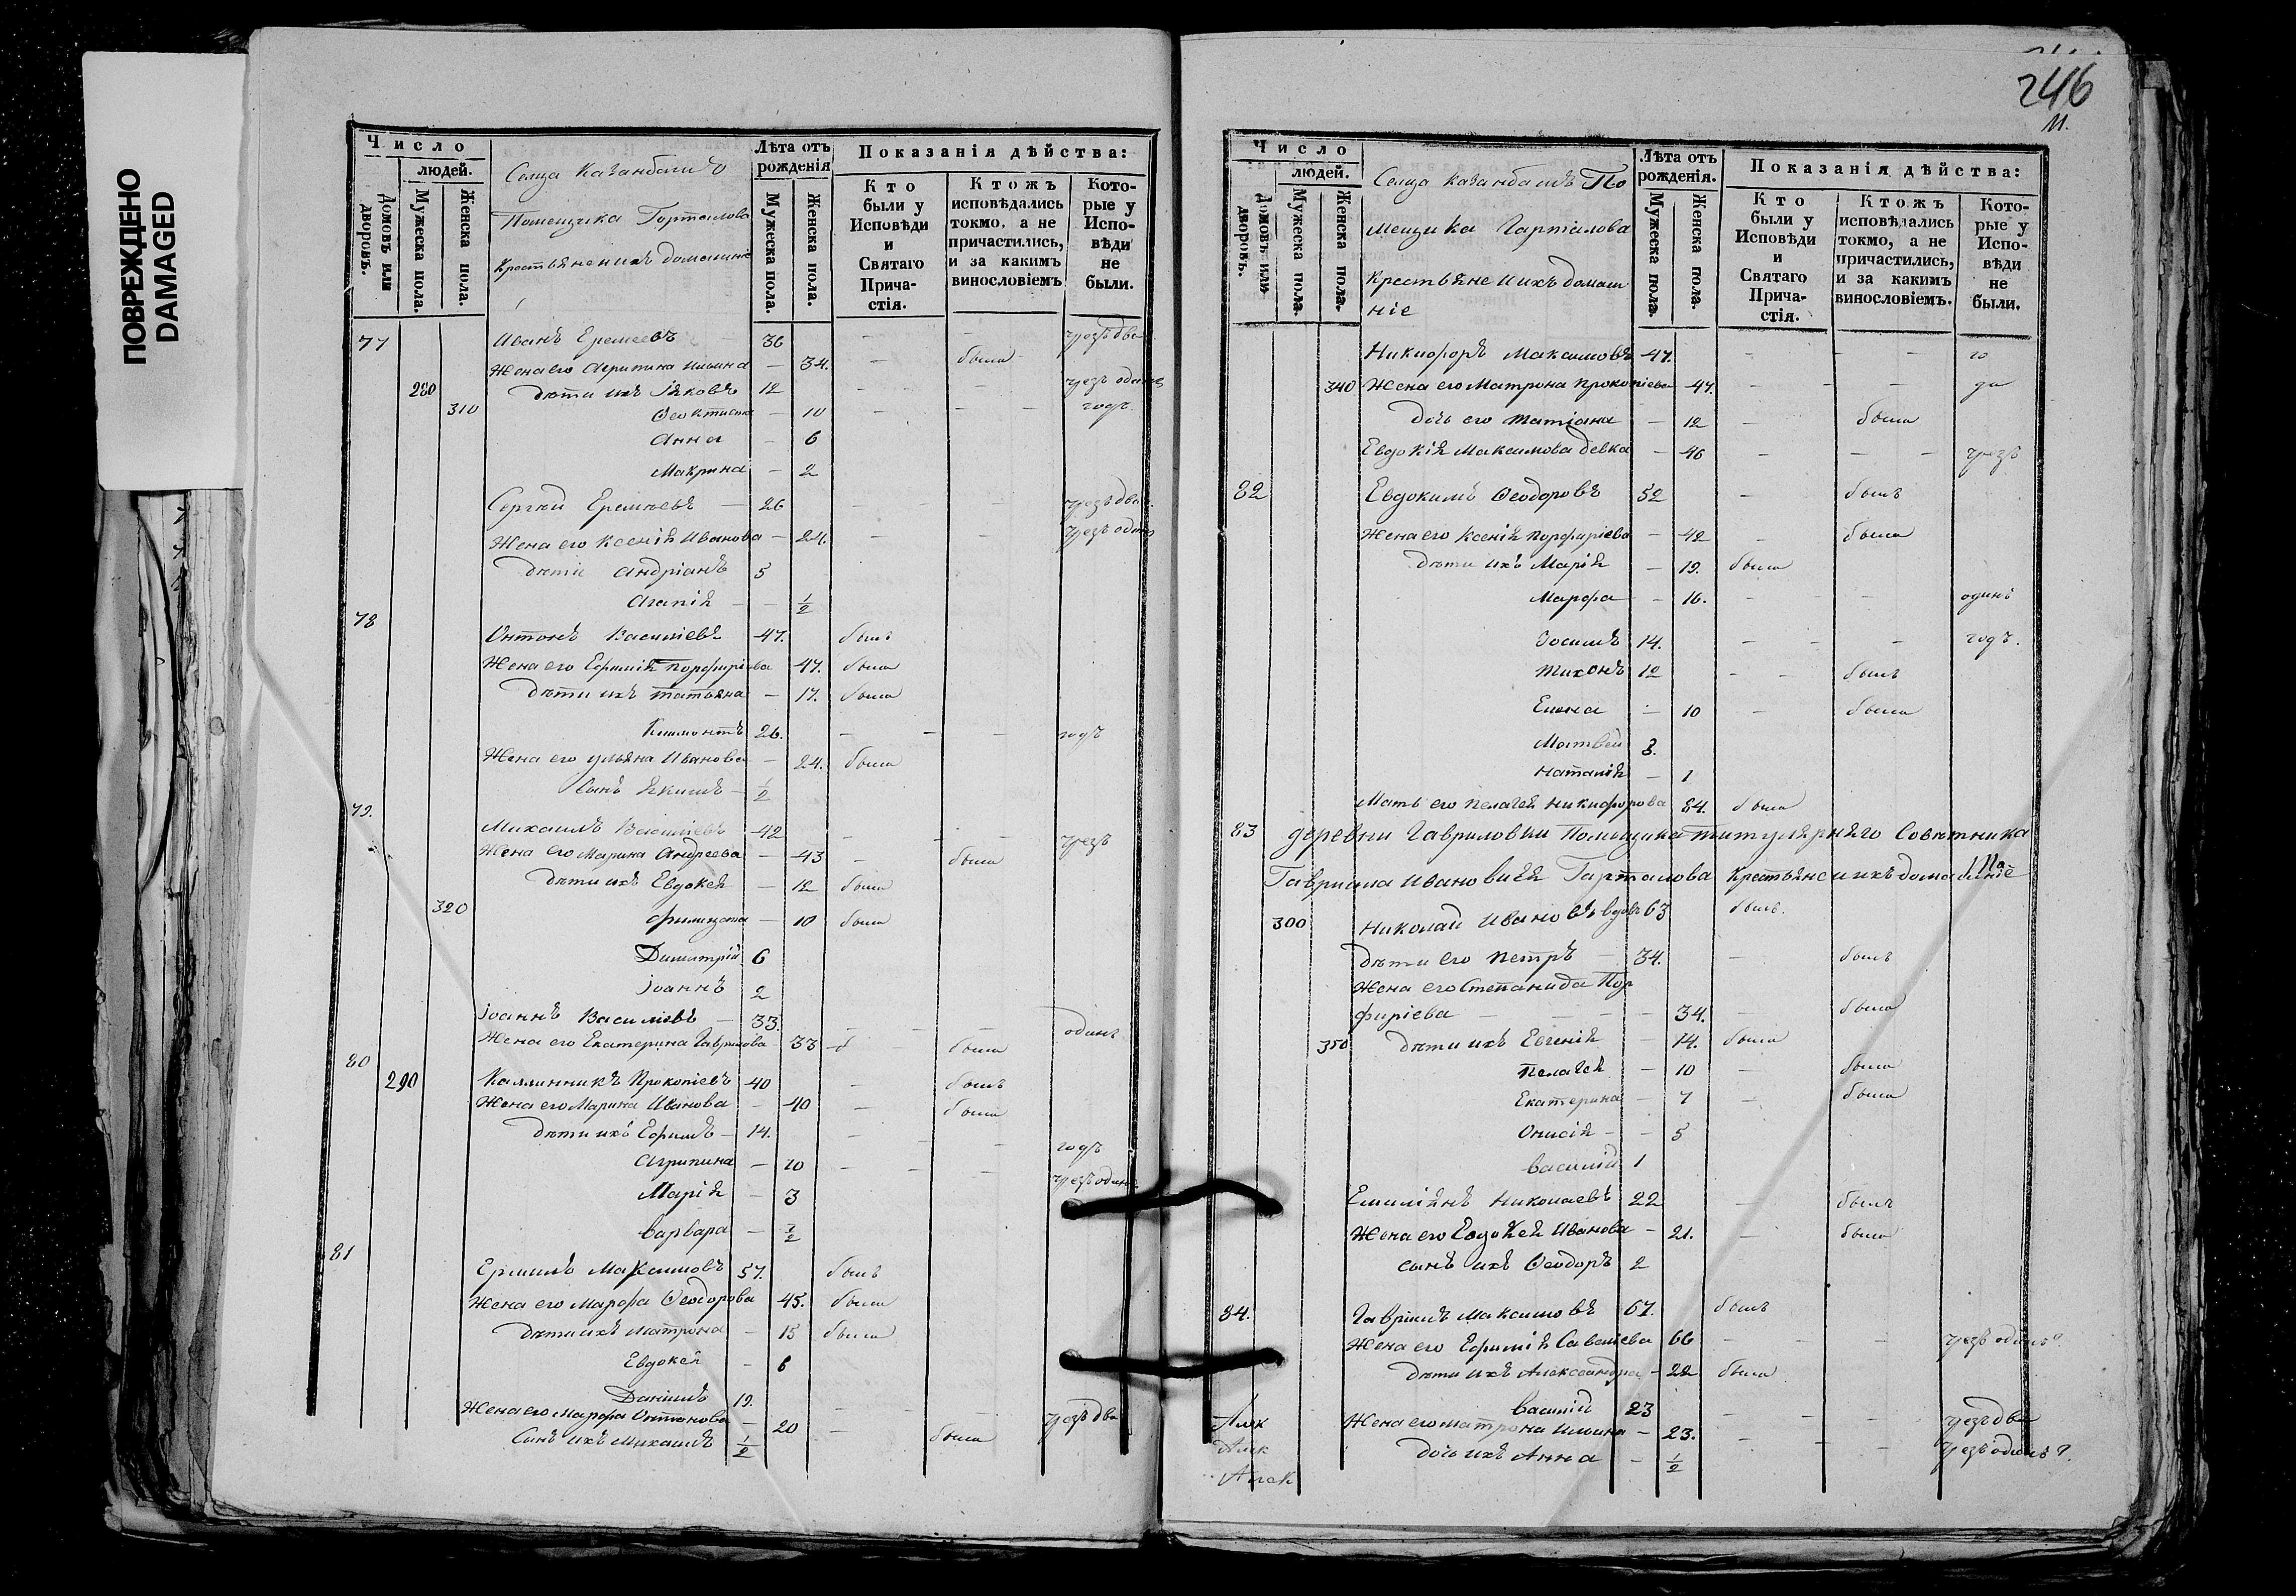 ПОВРЕЖДЕНО
DAMAGED
Число
людей.
Домовъ или дворовъ.
Мужеска пола.
Женска пола.
Лѣта отъ рожденія
Мужеска пола.
Женска пола.
Показанія дѣйства:
Кто были у Исповѣди и Святаго Прича-стія.
Ктожъ исповѣдались токмо, а не причастились, и за какимъ винословіемъ
Кото-рые у Испо-вѣди не были.
Помещика Гортолова
Крестьяне и ихъ домашніе
77 Иванъ Еремеевъ 36 — — чрезъ два
Жена его Агрипина Ильина — 34. — была
280 дѣти ихъ Іяковъ 12 — — чрезъ одинъ
310 Ѳеоктиста — 10 — — — годъ
Анна — 6
Макрина — 2
Сергѣй Еремѣевъ — 26 — — чрезъ два
Жена его Ксенія Иванова — 24. — — чрезъ одинъ
дѣти Андріанъ 5
Агапія — — 1/2
78 Антонъ Василіевъ 47. былъ
Жена его Ефимія Порфиріева 47. была
дѣти ихъ Татьяна — 17. была
Климонтъ 26. — — — годъ
Жена его Ульяна Иванова — 24. была
сынъ Якимъ — 1/2
79. Михаилъ Василіевъ 42 — — чрезъ
Жена его Марина Андреева — 43 — была
дѣти ихъ Евдокея — 12 была
320 — 10 была
Димитрій 6
Іоаннъ 2
Іоаннъ Василіевъ — 33. — — — одинъ
Жена его Екатерина Гаврилова 33 была
80
290 Каллинникъ Прокопіевъ 40 — былъ
Жена его Марина Иванова — 40 — была
дѣти ихъ Ефимъ — 14. — — годъ
Агрипина — 10 — — — чрезъ одинъ
Марія — 3
Варвара —
81 Ермилъ Максимовъ 57. былъ
Жена его Марфа Ѳеодорова 45. была
дѣти ихъ Матрона — 15 была
Евдокея — 6
Даніилъ 19. — — чрезъ два
Жена его Марфа Антонова — 20 — была
Сынъ ихъ Михаилъ 1/2
246
Число
людей.
Домовъ или дворовъ.
Мужеска пола.
Женска пола.
Лѣта отъ рожденія.
Мужеска пола.
Женска пола.
Показанія дѣйства:
Кто были у Исповѣди и Святаго Прича-стія.
Ктожъ исповѣдались токмо, а не причастились, и за какимъ винословіемъ.
Кото-рые у Испо-вѣди не были.
Сельца Казанбашъ По
мещика Гартолова
Крестьяне и ихъ домаш
ніе
Никифоръ Максимовъ 47. — — — го
340 Жена его Матрона Прокопіева 47. — — — да
дочь его Татіана — 12 — была
Евдокія Максимова девка — 46 — — — чрезъ
82 Евдокимъ Ѳеодоровъ 52 — былъ
Жена его Ксенія Порфиріева — 42 — была
дѣти ихъ Марія — 19. была
Марфа — 16. — — одинъ
Зосимъ 14. — — — годъ.
Тихонъ 12 — — былъ
Елена — 10 — была
Матвей 8.
Наталія — 1
Мать его Пелагея Никифорова 84. была
83 деревни Гавриловки Помещика титулярнаго Совѣтника
Гавриила Ивановича Гарталова Крестьяне и ихъ домашніе
300 Николай Ивановъ вдовъ 63 былъ.
дѣти его Петръ — 34. — былъ
Жена его Степанида Пор
фиріева — — — — 34. — была
350 дѣти ихъ Евгенія — 14. была
Пелагея — 10 — была
Екатерина — 7 — была
Онисія — — 5
Василій 1
Емиліянъ Николаевъ 22 — былъ
Жена его Евдокея Иванова — 21. — была
сынъ ихъ Ѳеодоръ 2
84. Гавріилъ Максимовъ 67. былъ
Жена его Ефимія Савеліева 66 — — — чрезъ одинъ
дѣти ихъ Александра — 22 была
Василій 23 — — — чрезъ два
Жена его Матрона Ильина — 23. — — — чрезъ одинъ
дочь ихъ Анна — 1/2
Алек